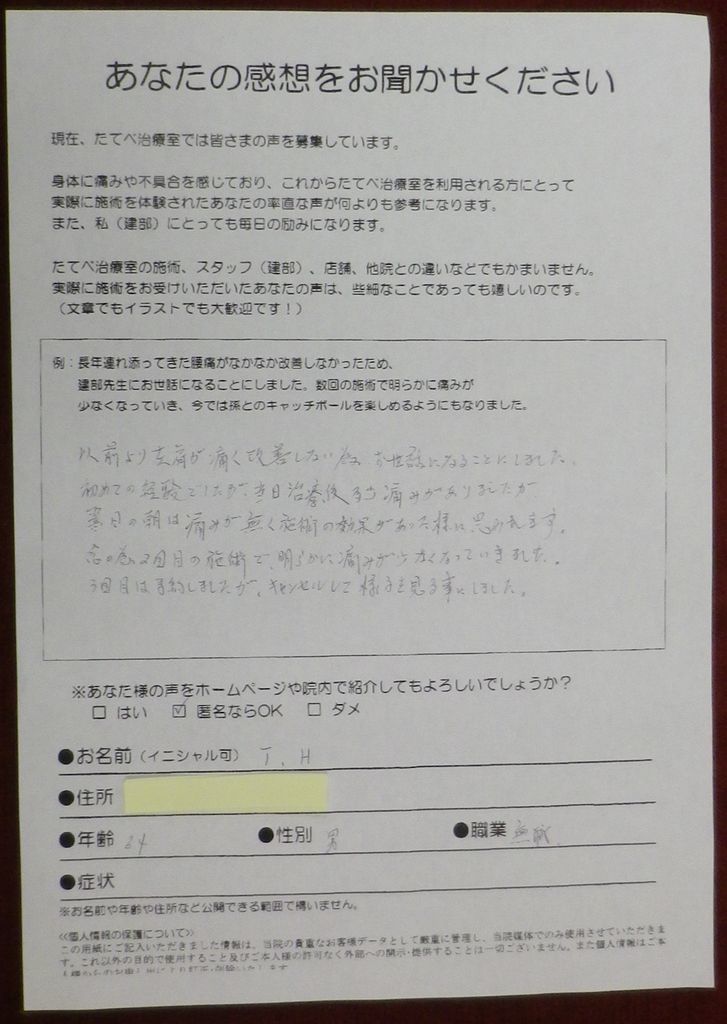 あなたの感想をお聞かせください
現在、たてべ治療室では皆さまの声を募集しています。
身体に痛みや不具合を感じており、これからたてべ治療室を利用される方にとって
実際に施術を体験されたあなたの率直な声が何よりも参考になります。
また、私（建部）にとっても毎日の励みになります。
たてべ治療室の施術、スタッフ（建部）、店舗、他院との違いなどでもかまいません。
実際に施術をお受けいただいたあなたの声は、些細なことであっても嬉しいのです。
（文章でもイラストでも大歓迎です！）
例：長年連れ添ってきた腰痛がなかなか改善しなかったため、
建部先生にお世話になることにしました。数回の施術で明らかに痛みが
少なくなっていき、今では孫とのキャッチボールを楽しめるようにもなりました。
以前より左肩が痛く改善しない為、お世話になることにしました。
初めての経験でしたが、当日治療後 痛みがありましたが
翌日の朝は痛みが無く施術の効果があった様に思われます。
2回目の施術で、明らかに痛みが少なくなっていきました。
3回目は予約しましたが、キャンセルして様子を見る事にしました。
※あなた様の声をホームページや院内で紹介してもよろしいでしょうか？
□ はい ☑ 匿名ならOK □ ダメ
●お名前（イニシャル可） T. H
●住所
●年齢 64 ●性別 男 ●職業 無職
●症状
※お名前や年齢や住所など公開できる範囲で構いません。
≪個人情報の保護について≫
この用紙にご記入いただきました情報は、当院の貴重なお客様データとして厳重に管理し、当院媒体でのみ使用させていただきま
す。これ以外の目的で使用すること及びご本人様の許可なく外部への開示・提供することは一切ございません。また個人情報はご本